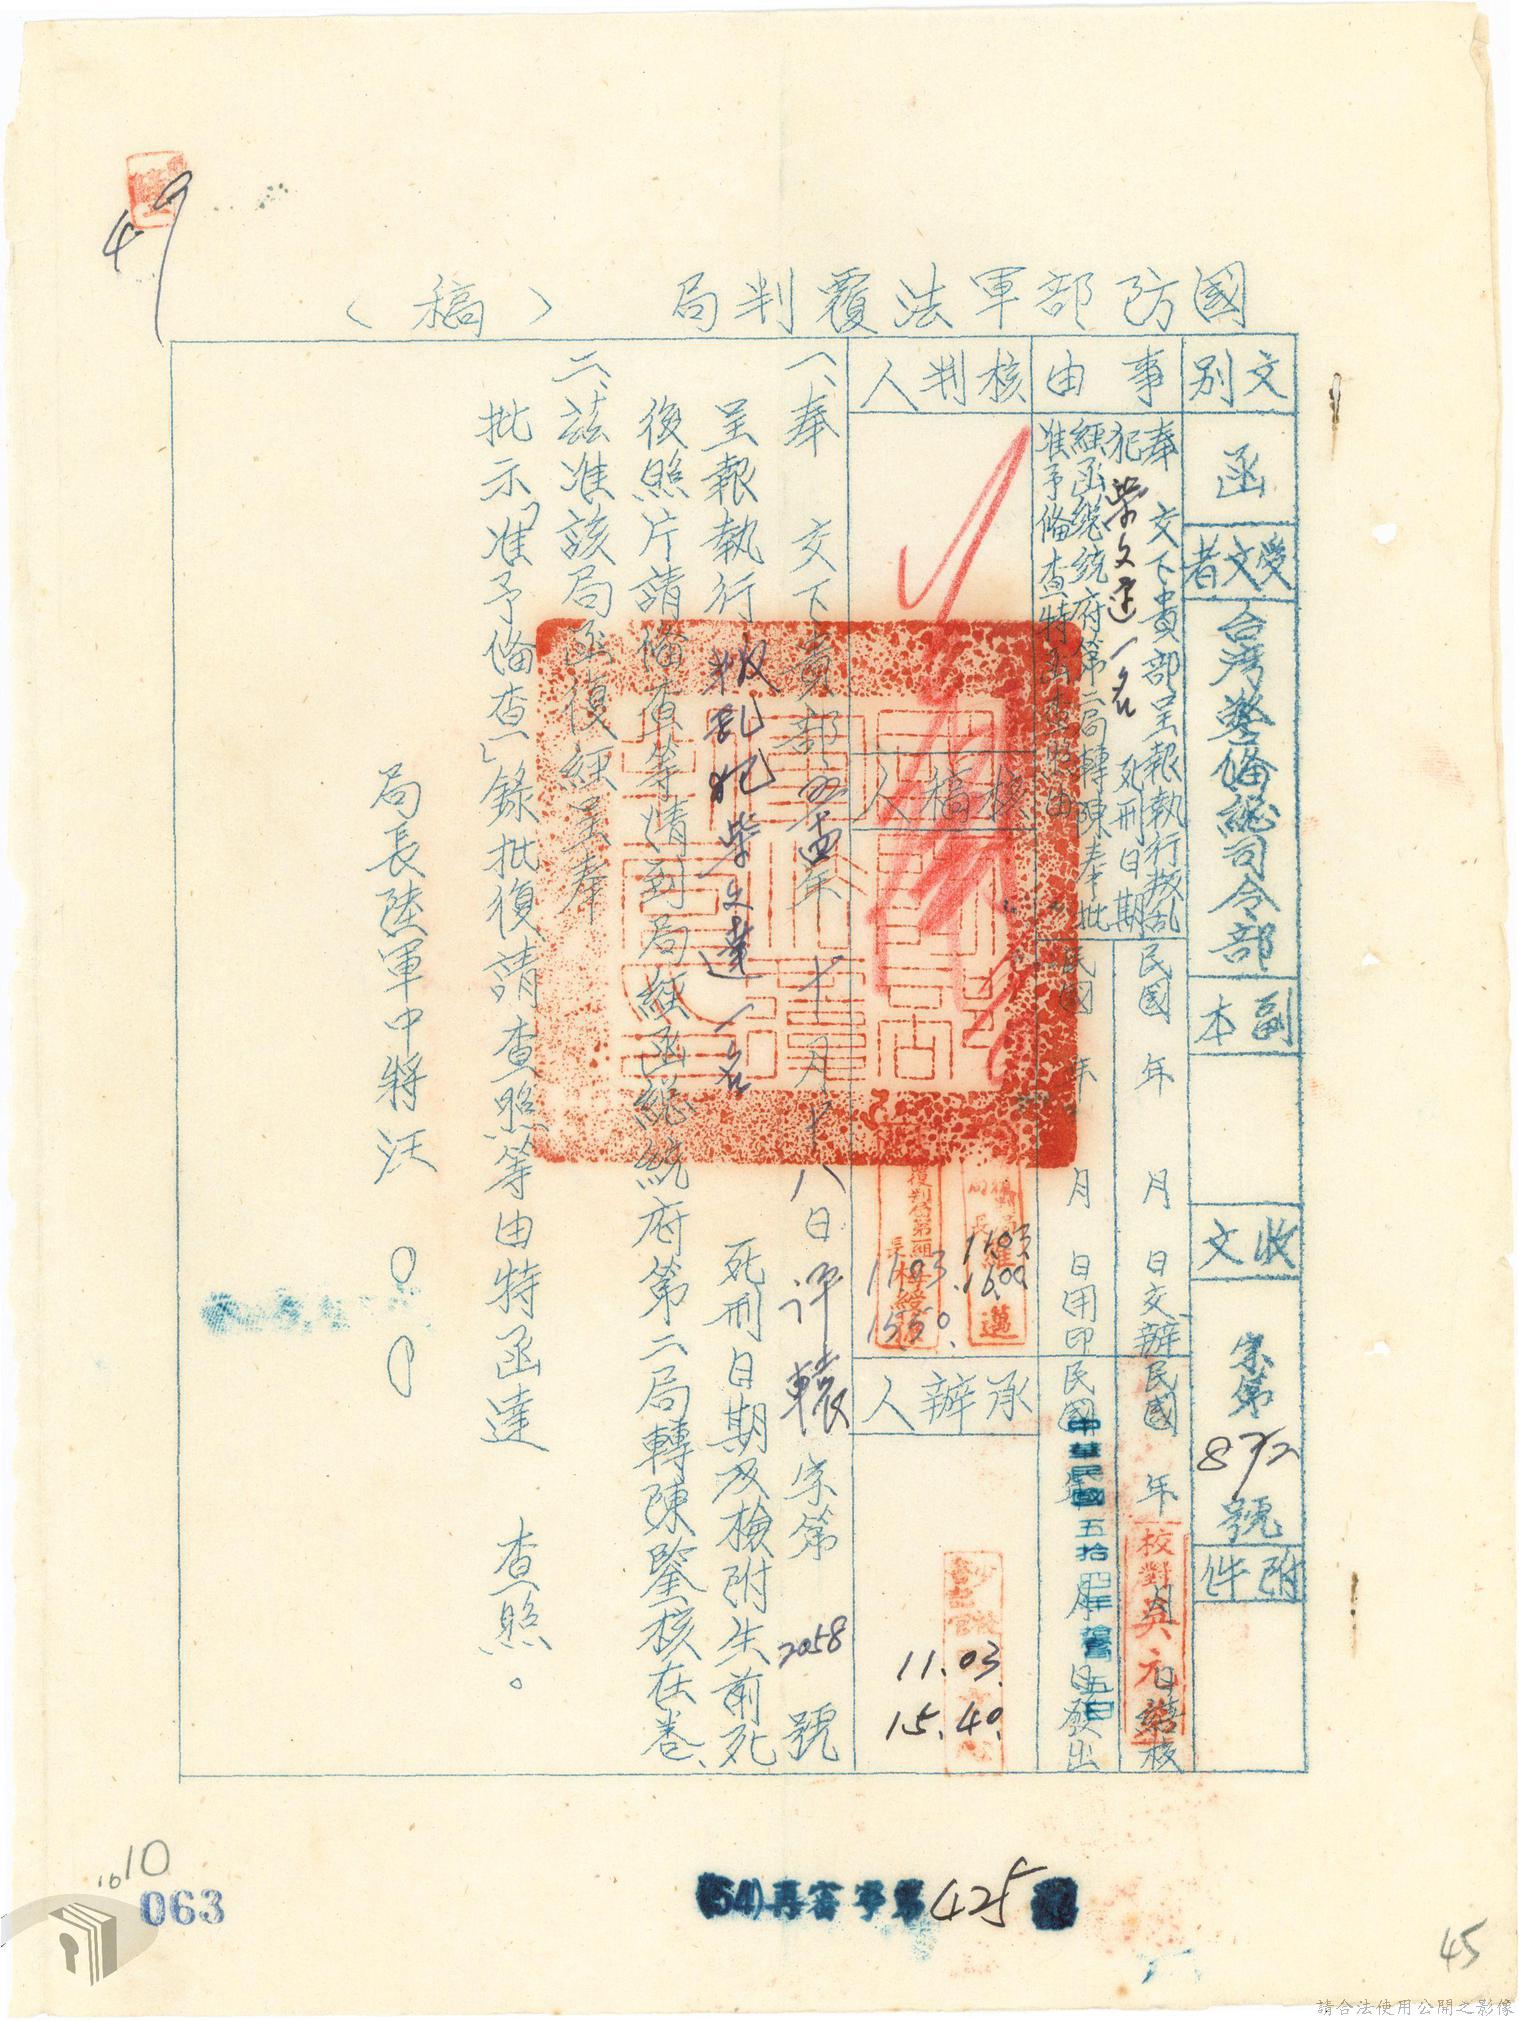 國防部軍法覆判局 (稿)
文別
函
受文者
台湾警備總司令部
副本
收文
宗第872號
附件
事由
奉 交下貴部呈報執行叛乱
犯柴文達一名 死刑日期
經函總統府第二局轉陳奉批
准予備查特函查照由
民國 年 月 日交辦
民國 年 月 日繕校
校對吳元
民國 年 月 日用印
民國 年 月 日發出
核判人
核稿人
1103
1600
1103
1550
承辦人
11.03
15.40
一、奉 交下貴部 年十月十八日評轅宗第2058號
呈報執行叛乱犯柴文達一名 死刑日期及檢附生前死
後照片請備查等情到局經函總統府第二局轉陳鑒核在卷、
二、茲准該局函復經呈奉
批示「准予備查」錄批復請查照等由特函達 查照。
局長陸軍中將汪〇〇
49
1010
063
(54)再審字第425號
45
請合法使用公開之影像